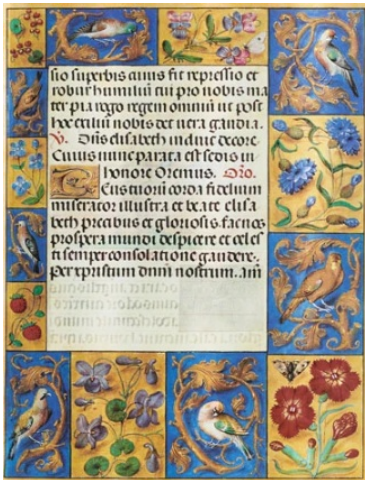 sio superbis cuius fit repressio et
robur humiliū cui pro nobis ma
ter pia rogo regem omniū ut post
hoc exiliū nobis det vera gaudia.
V. Diffusa elisabeth indute decore
Cuius nunc parata est sedis in
honore Oremus. Oro.
Tuorum corda fidelium
miserator illustra et beate elisa
beth precibus et gloriosis fac nos
prospera mundi despicere et celes
ti semper consolatione gaudere.
Per xpristum dnm nostrum. am